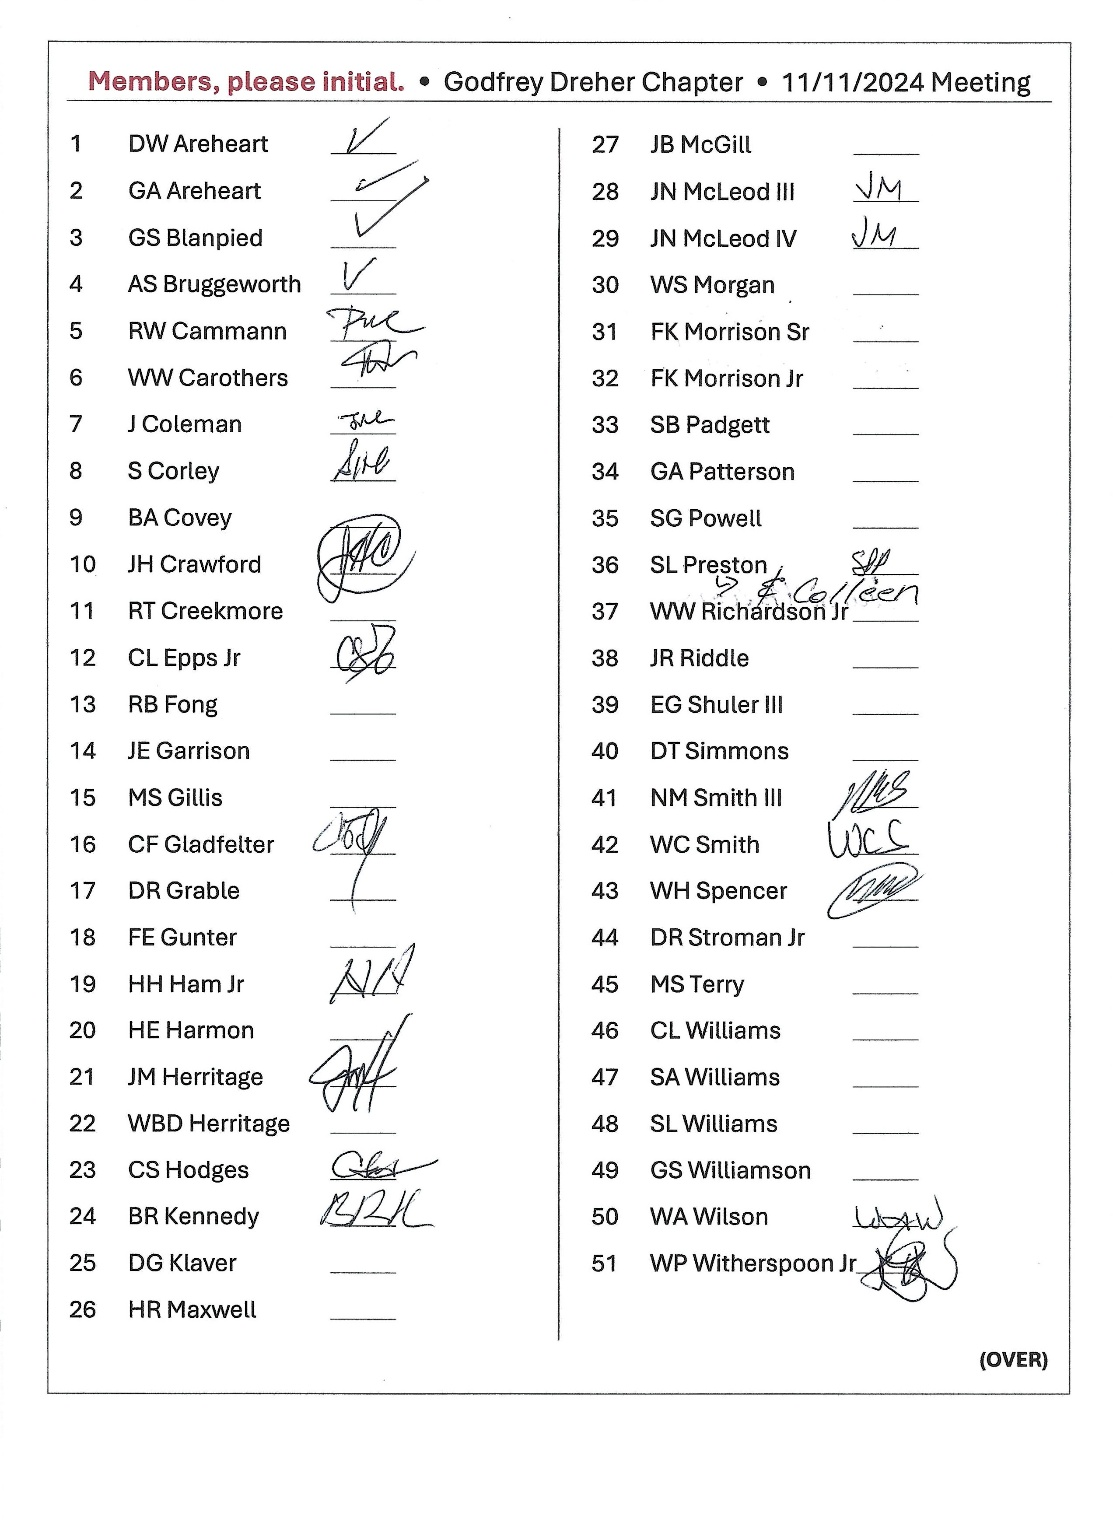 Members, please initial. • Godfrey Dreher Chapter • 11/11/2024 Meeting
1 DW Areheart ✓
2 GA Areheart ✓
3 GS Blanpied ✓
4 AS Bruggeworth ✓
5 RW Cammann
6 WW Carothers
7 J Coleman
8 S Corley
9 BA Covey
10 JH Crawford
11 RT Creekmore
12 CL Epps Jr
13 RB Fong
14 JE Garrison
15 MS Gillis
16 CF Gladfelter
17 DR Grable
18 FE Gunter
19 HH Ham Jr
20 HE Harmon
21 JM Herritage
22 WBD Herritage
23 CS Hodges
24 BR Kennedy BRK
25 DG Klaver
26 HR Maxwell
27 JB McGill
28 JN McLeod III JM
29 JN McLeod IV JM
30 WS Morgan
31 FK Morrison Sr
32 FK Morrison Jr
33 SB Padgett
34 GA Patterson
35 SG Powell
36 SL Preston
& Colleen
37 WW Richardson Jr
38 JR Riddle
39 EG Shuler III
40 DT Simmons
41 NM Smith III NMS
42 WC Smith WCS
43 WH Spencer
44 DR Stroman Jr
45 MS Terry
46 CL Williams
47 SA Williams
48 SL Williams
49 GS Williamson
50 WA Wilson WAW
51 WP Witherspoon Jr
(OVER)